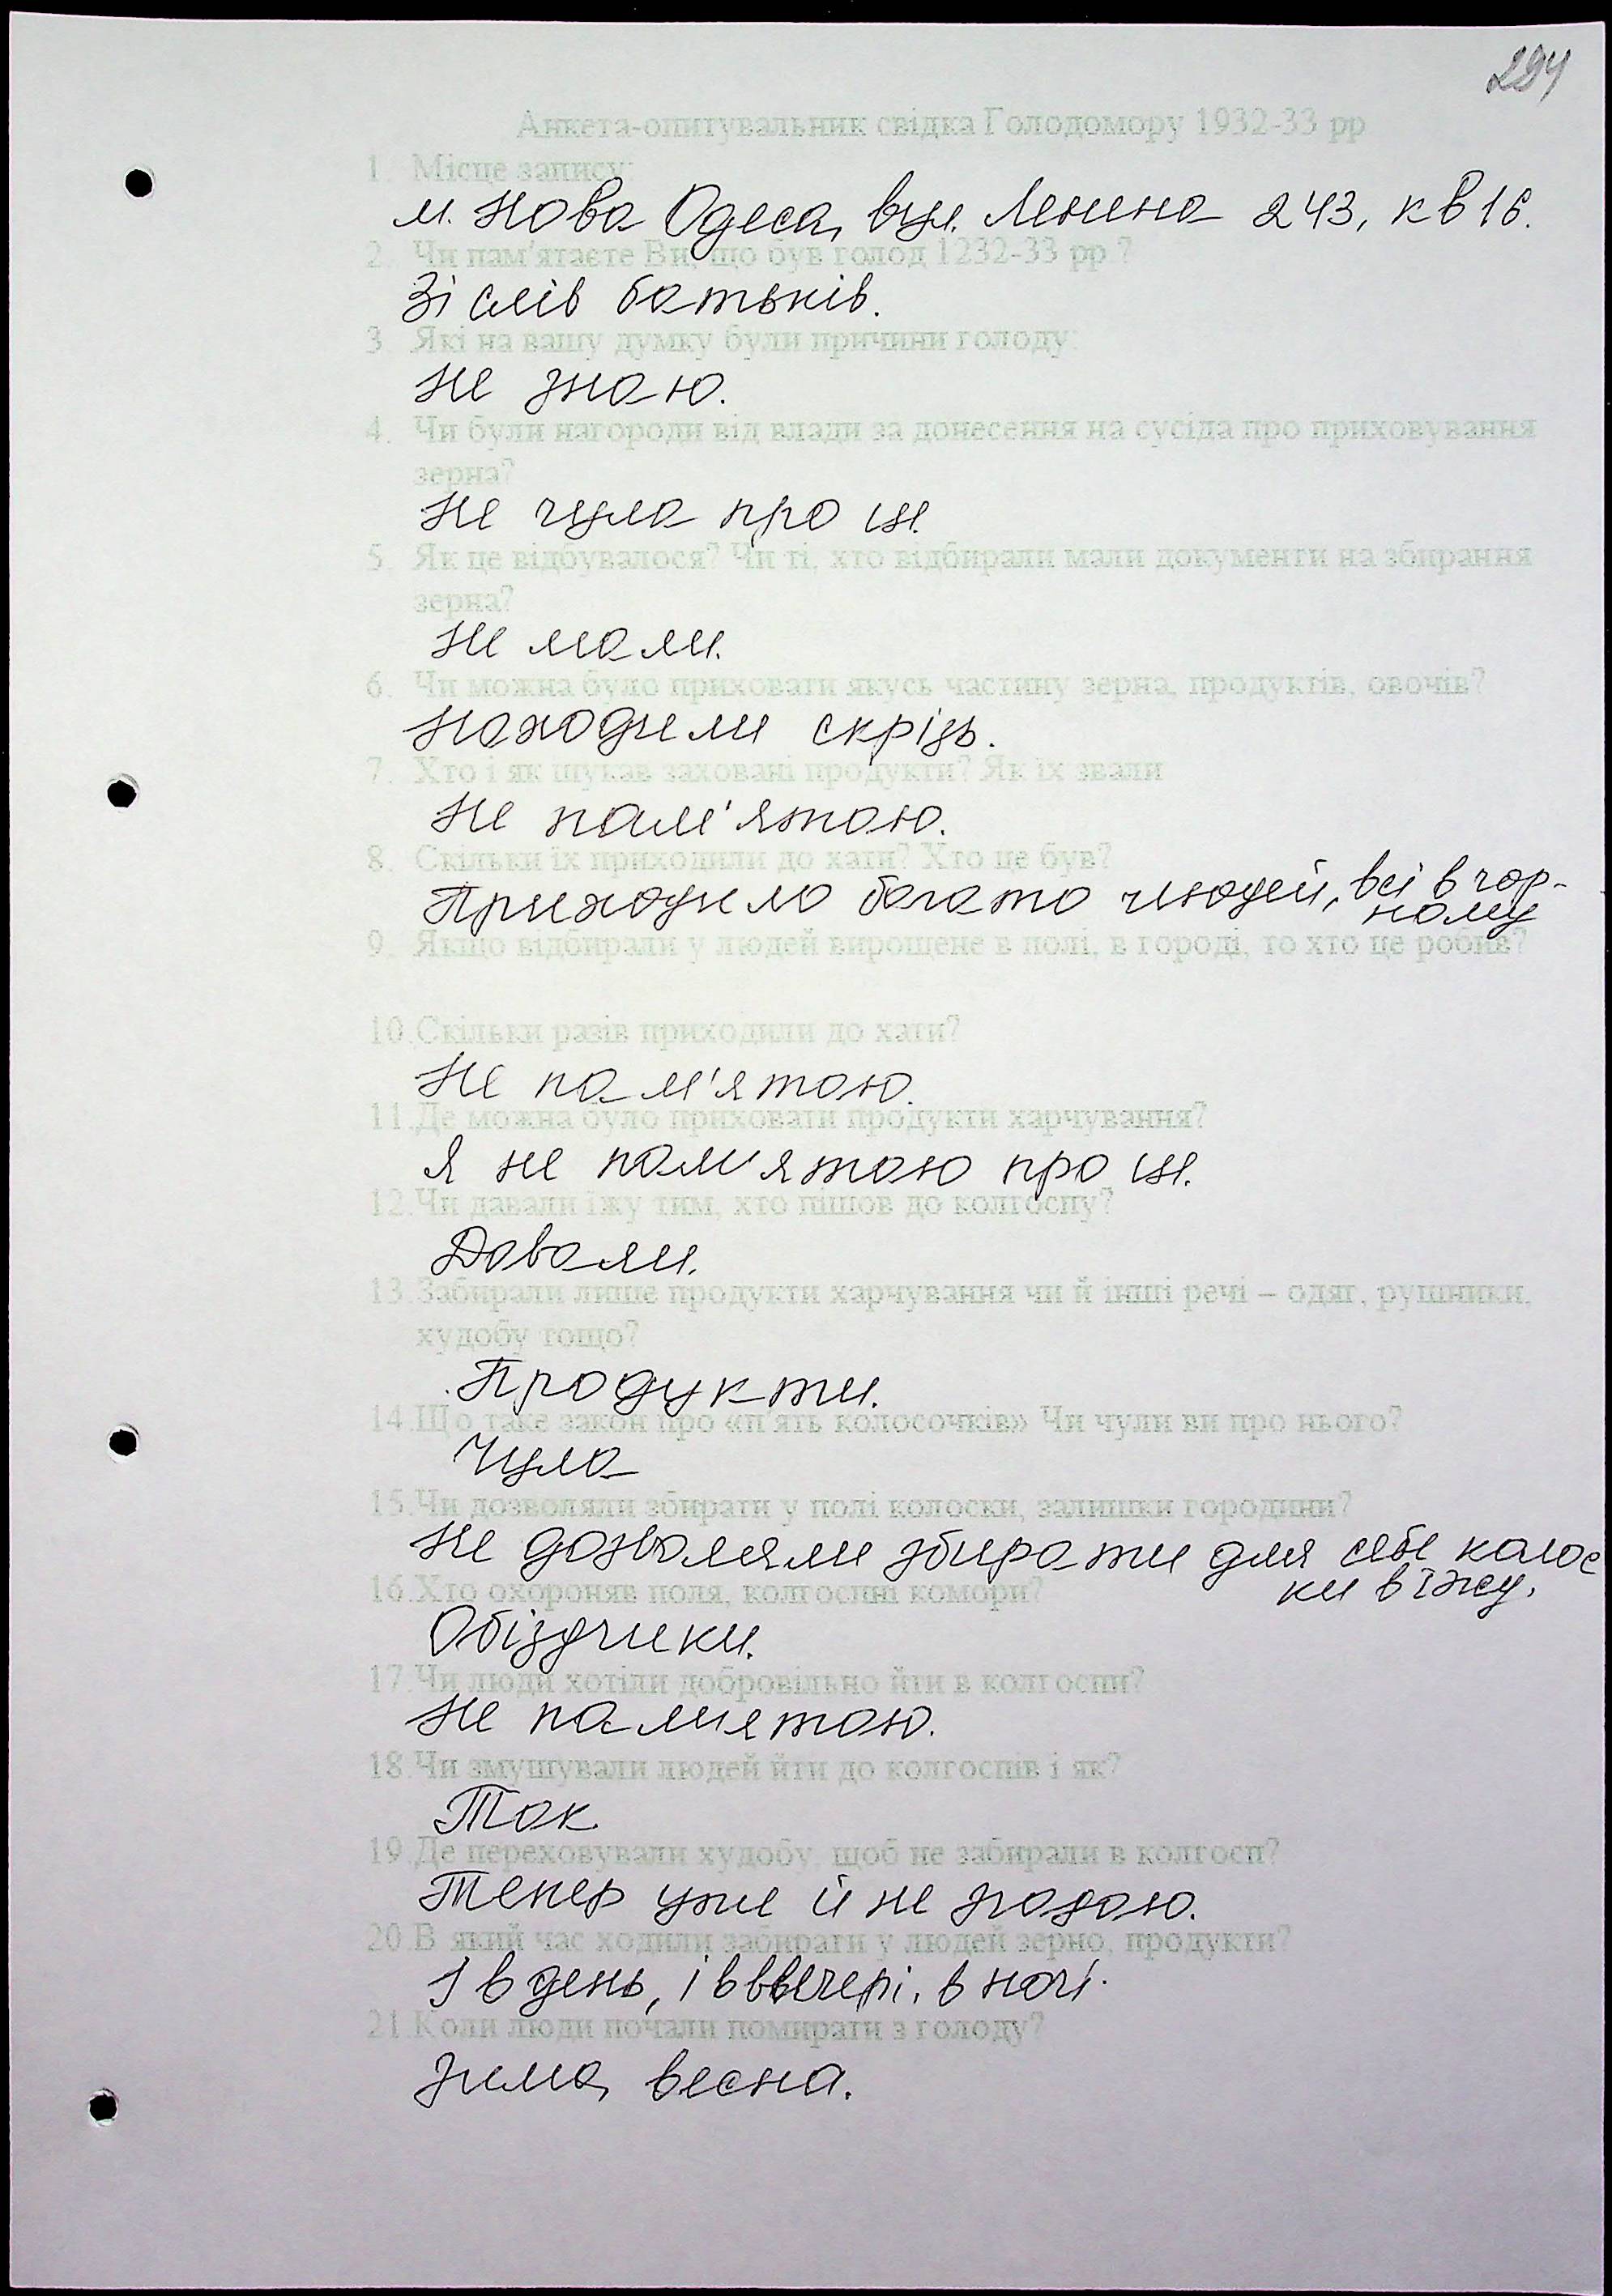 294
Анкета-опитувальник свідка Голодомору 1932-33 рр
1. Місце запису:
м. Нова Одеса, вул. Леніна 243, кв 16.
2. Чи пам'ятаєте Ви, що був голод 1232-33 рр ?
Зі слів батьків.
3. Які на вашу думку були причини голоду:
Не знаю.
4. Чи були нагороди від влади за донесення на сусіда про приховування
зерна?
Не чула про це.
5. Як це відбувалося? Чи ті, хто відбирали мали документи на збирання
зерна?
Не мали.
6. Чи можна було приховати якусь частину зерна, продуктів, овочів?
Находили скрізь.
7. Хто і як шукав заховані продукти? Як їх звали
Не пам'ятаю.
8. Скільки їх приходили до хати? Хто це був?
Приходило багато людей, всі в чор-
ному
9. Якщо відбирали у людей вирощене в полі, в городі, то хто це робив?
10. Скільки разів приходили до хати?
Не пам'ятаю.
11. Де можна було приховати продукти харчування?
Я не пам'ятаю про це.
12. Чи давали їжу тим, хто пішов до колгоспу?
Давали.
13. Забирали лише продукти харчування чи й інші речі – одяг, рушники,
худобу тощо?
Продукти.
14. Що таке закон про «п'ять колосочків» Чи чули ви про нього?
Чула
15. Чи дозволяли збирати у полі колоски, залишки городини?
Не дозволяли збирати для себе колос
ки в їжу.
16. Хто охороняв поля, колгоспні комори?
Обіздчики.
17. Чи люди хотіли добровільно йти в колгоспи?
Не памятаю.
18. Чи змушували людей йти до колгоспів і як?
Так.
19. Де переховували худобу, щоб не забирали в колгосп?
Тепер уже й не згадаю.
20. В який час ходили забирати у людей зерно, продукти?
І в день, і в ввечері, в ночі.
21. Коли люди почали помирати з голоду?
Зима, весна.